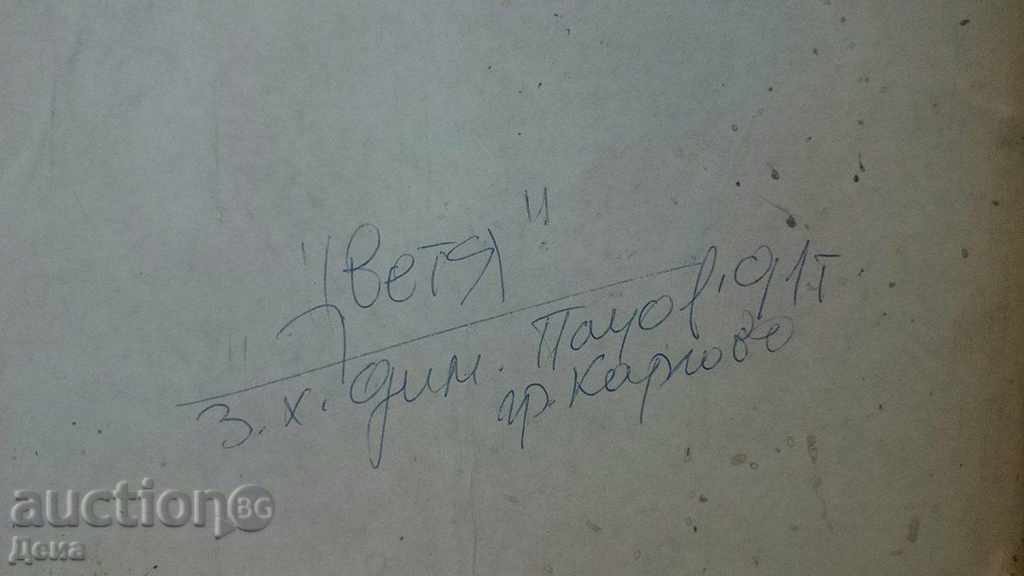 "Цветя"
з.х. Дим. Пацов, 91г.
гр. Карлово
auctionBG
Дека